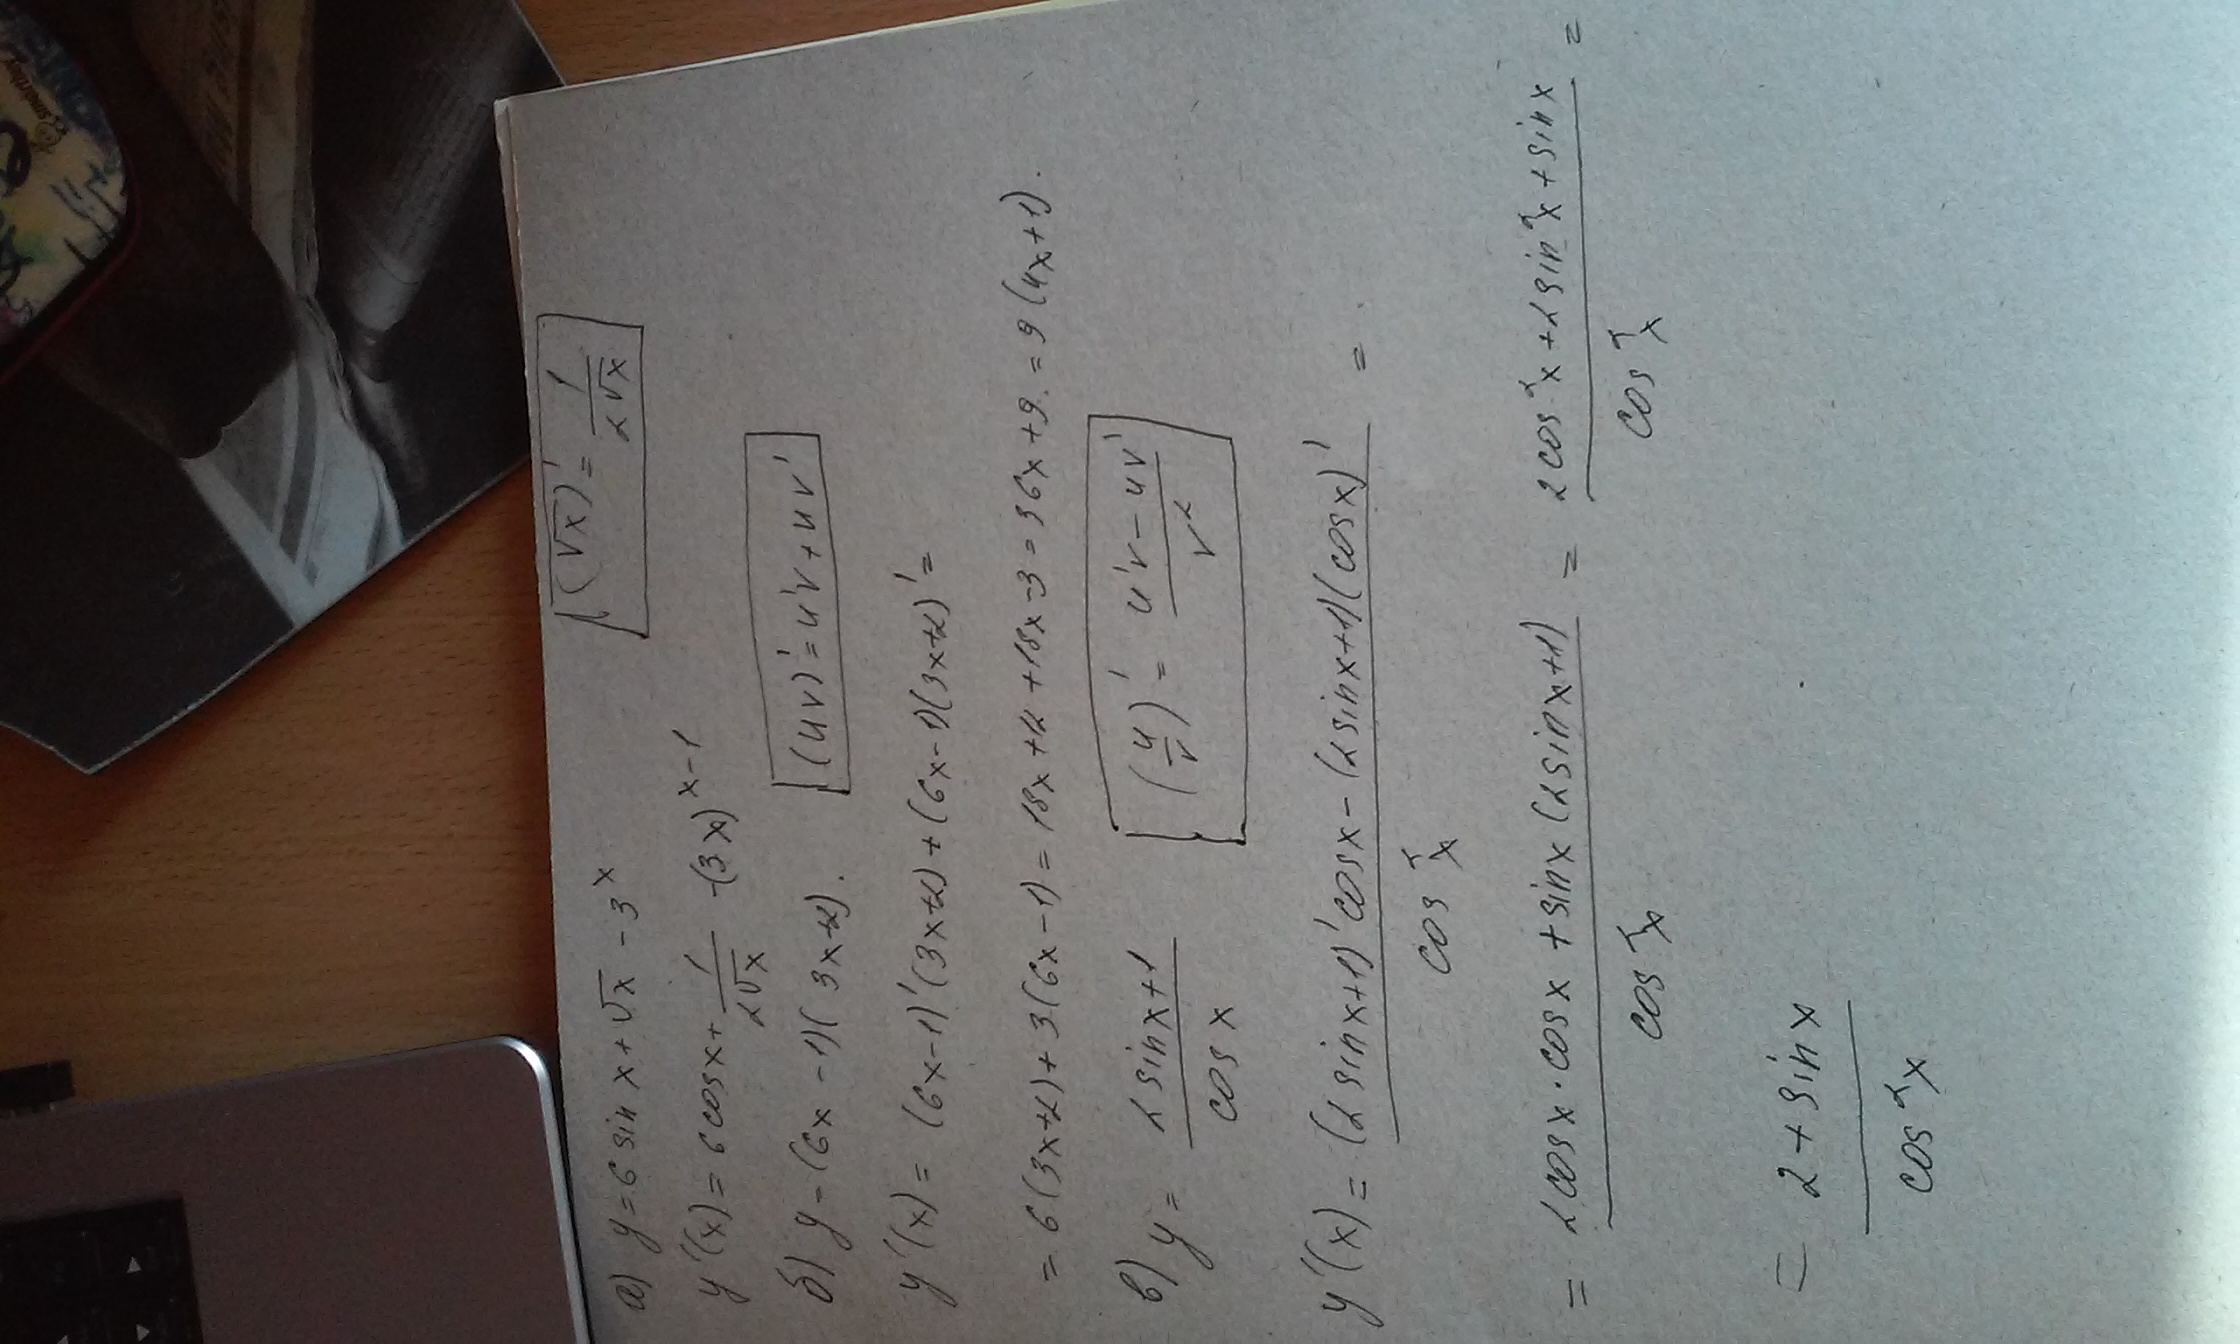 а) y = 6 sin x + √x - 3^x
(√x)' = 1/(2√x)
y'(x) = 6 cos x + 1/(2√x) - (3x)^(x-1)
(uv)' = u'v + uv'
б) y - (6x - 1)(3x+2).
y'(x) = (6x-1)'(3x+2) + (6x-1)(3x+2)' =
= 6(3x+2) + 3(6x-1) = 18x + 12 + 18x - 3 = 36x + 9 = 9(4x+1).
(u/v)' = (u'v - uv')/v²
в) y = (2 sin x + 1)/(cos x)
y'(x) = ((2 sin x+1)' cos x - (2 sin x+1)(cos x)')/(cos² x) =
= (2 cos x · cos x + sin x (2 sin x+1))/(cos² x) = (2 cos² x + 2 sin² x + sin x)/(cos² x) =
= (2 + sin x)/(cos² x)